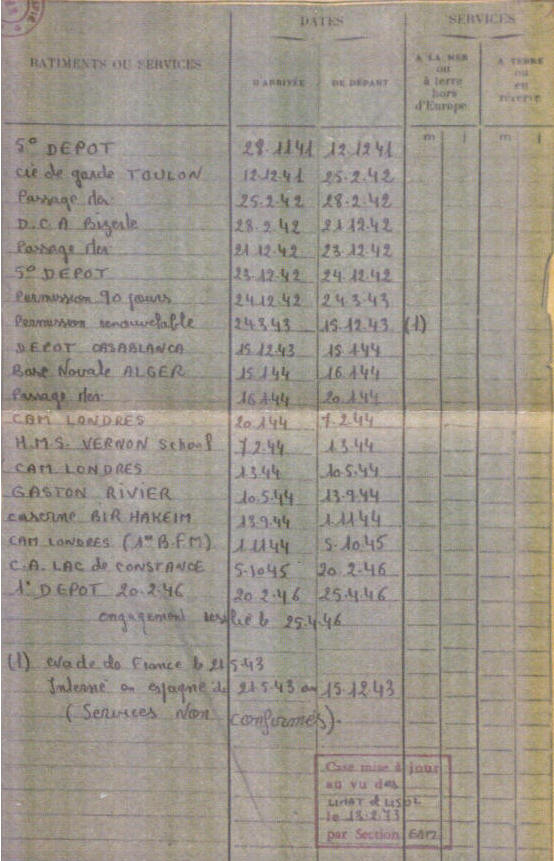 DATES SERVICES
BATIMENTS OU SERVICES D'ARRIVÉE DE DÉPART A LA MER ou à terre hors d'Europe A TERRE ou en réserve
m j m j
5° DEPOT 28.1141 12.1241
cie de garde TOULON 12.12.41 25.2.42
Passage Mer 25.2.42 28.2.42
D.C.A Bizerte 28.2.42 21.12.42
Passage Mer 21.12.42 23.12.42
5° DEPOT 23.12.42 24.12.42
Permission 90 jours 24.12.42 24.3.43
Permission renouvelable 24.3.43 15.12.43 (1)
DEPOT CASABLANCA 15.12.43 15.1.44
Base Navale ALGER 15.1.44 16.1.44
Passage Mer 16.1.44 20.1.44
CAM LONDRES 20.1.44 7.2.44
H.M.S. VERNON School 7.2.44 1.3.44
CAM LONDRES 1.3.44 10.5.44
GASTON RIVIER 10.5.44 13.9.44
caserne BIR HAKEIM 13.9.44 1.11.44
CAM LONDRES (1er B.F.M) 1.11.44 5.10.45
C.A. LAC de CONSTANCE 5.10.45 20.2.46
1° DEPOT 20.2.46 20.2.46 25.4.46
engagement resilié le 25.4.46
(1) evadé de France le 21.5.43
Interné en espagne de 21.5.43 au 15.12.43
(Services Non confirmés).
Case mise à jour
au vu des
le 13.2.73
par Section